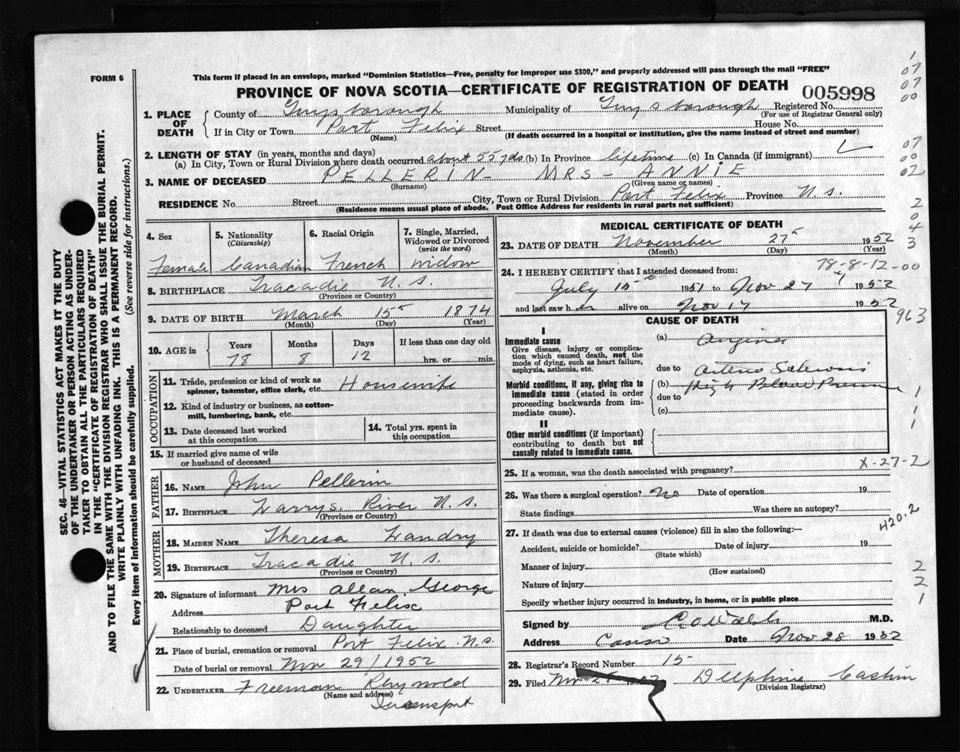 FORM 6
This form if placed in an envelope, marked "Dominion Statistics—Free, penalty for improper use $300," and properly addressed will pass through the mail "FREE"
PROVINCE OF NOVA SCOTIA—CERTIFICATE OF REGISTRATION OF DEATH 005998
1. PLACE OF DEATH
County of Guysborough Municipality of Guysborough Registered No.
(For use of Registrar General only)
If in City or Town Port Felix Street House No.
(Name) (If death occurred in a hospital or institution, give the name instead of street and number)
2. LENGTH OF STAY (in years, months and days)
(a) In City, Town or Rural Division where death occurred about 55 yrs (b) In Province lifetime (c) In Canada (if immigrant)
3. NAME OF DECEASED PELLERIN - MRS - ANNIE
(Surname) (Given name or names)
RESIDENCE No. Street City, Town or Rural Division Port Felix Province N.S.
(Residence means usual place of abode. Post Office Address for residents in rural parts not sufficient)
4. Sex 5. Nationality (Citizenship) 6. Racial Origin 7. Single, Married, Widowed or Divorced (write the word)
Female Canadian French widow
8. BIRTHPLACE Tracadie N.S.
(Province or Country)
9. DATE OF BIRTH March 15 1874
(Month) (Day) (Year)
10. AGE in Years Months Days If less than one day old
78 8 12 hrs. or min.
OCCUPATION
11. Trade, profession or kind of work as spinner, teamster, office clerk, etc. Housewife
12. Kind of industry or business, as cotton-mill, lumbering, bank, etc.
13. Date deceased last worked at this occupation
14. Total yrs. spent in this occupation
15. If married give name of wife or husband of deceased
FATHER
16. NAME John Pellerin
17. BIRTHPLACE Larrys River N.S.
(Province or Country)
MOTHER
18. MAIDEN NAME Theresa Landry
19. BIRTHPLACE Tracadie N.S.
(Province or Country)
20. Signature of informant Mrs Allan George
Address Port Felix
Relationship to deceased Daughter
21. Place of burial, cremation or removal Port Felix N.S.
Date of burial or removal Nov 29/1952
22. UNDERTAKER Freeman
(Name and address)
Queensport
MEDICAL CERTIFICATE OF DEATH
23. DATE OF DEATH November 27 1952
(Month) (Day) (Year)
78-8-12-00
24. I HEREBY CERTIFY that I attended deceased from:
July 15 1951 to Nov 27 1952
and last saw her alive on Nov 17 1952
963
CAUSE OF DEATH
I
Immediate cause
Give disease, injury or complication which caused death, not the mode of dying, such as heart failure, asphyxia, asthenia, etc.
(a) Angina
due to
Morbid conditions, if any, giving rise to immediate cause (stated in order proceeding backwards from immediate cause).
(b) High Blood Pressure
due to
(c)
II
Other morbid conditions (if important) contributing to death but not causally related to immediate cause.
X-27-2
25. If a woman, was the death associated with pregnancy?
26. Was there a surgical operation? No Date of operation 19
State findings Was there an autopsy?
420.2
27. If death was due to external causes (violence) fill in also the following:—
Accident, suicide or homicide? Date of injury 19
(State which)
Manner of injury
(How sustained)
Nature of injury
Specify whether injury occurred in industry, in home, or in public place
Signed by M.D.
Address Canso Date Nov 28 1952
28. Registrar's Record Number 15
29. Filed Delphine Cashin
(Division Registrar)
SEC. 46—VITAL STATISTICS ACT MAKES IT THE DUTY
OF THE UNDERTAKER OR PERSON ACTING AS UNDER-
TAKER TO OBTAIN ALL THE PARTICULARS REQUIRED
IN THE "CERTIFICATE OF REGISTRATION OF DEATH"
AND TO FILE THE SAME WITH THE DIVISION REGISTRAR WHO SHALL ISSUE THE BURIAL PERMIT.
WRITE PLAINLY WITH UNFADING INK. THIS IS A PERMANENT RECORD.
Every item of information should be carefully supplied. (See reverse side for instructions.)
1
07
07
00
07
00
02
2
0
4
3
1
1
1
2
2
1